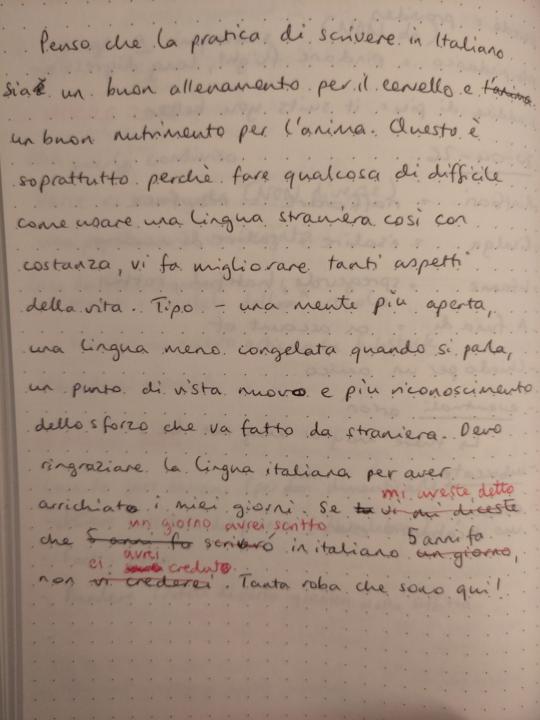 Penso che la pratica di scrivere in Italiano
sia è un buon allenamento per il cervello e l'anima
un buon nutrimento per l'anima. Questo è
soprattutto perchè fare qualcosa di difficile
come usare una lingua straniera così con
costanza, vi fa migliorare tanti aspetti
della vita. Tipo - una mente più aperta,
una lingua meno congelata quando si parla,
un punto di vista nuovo e più riconoscimento
dello sforzo che va fatto da straniera. Devo
ringraziare la lingua italiana per aver
mi aveste detto
arrichiato i miei giorni. Se tu vi mi diceste
un giorno avrei scritto 5 anni fa
che 5 anni fa scriverò in italiano un giorno,
ci avrei creduto
non vi crederei. Tanta roba che sono qui!